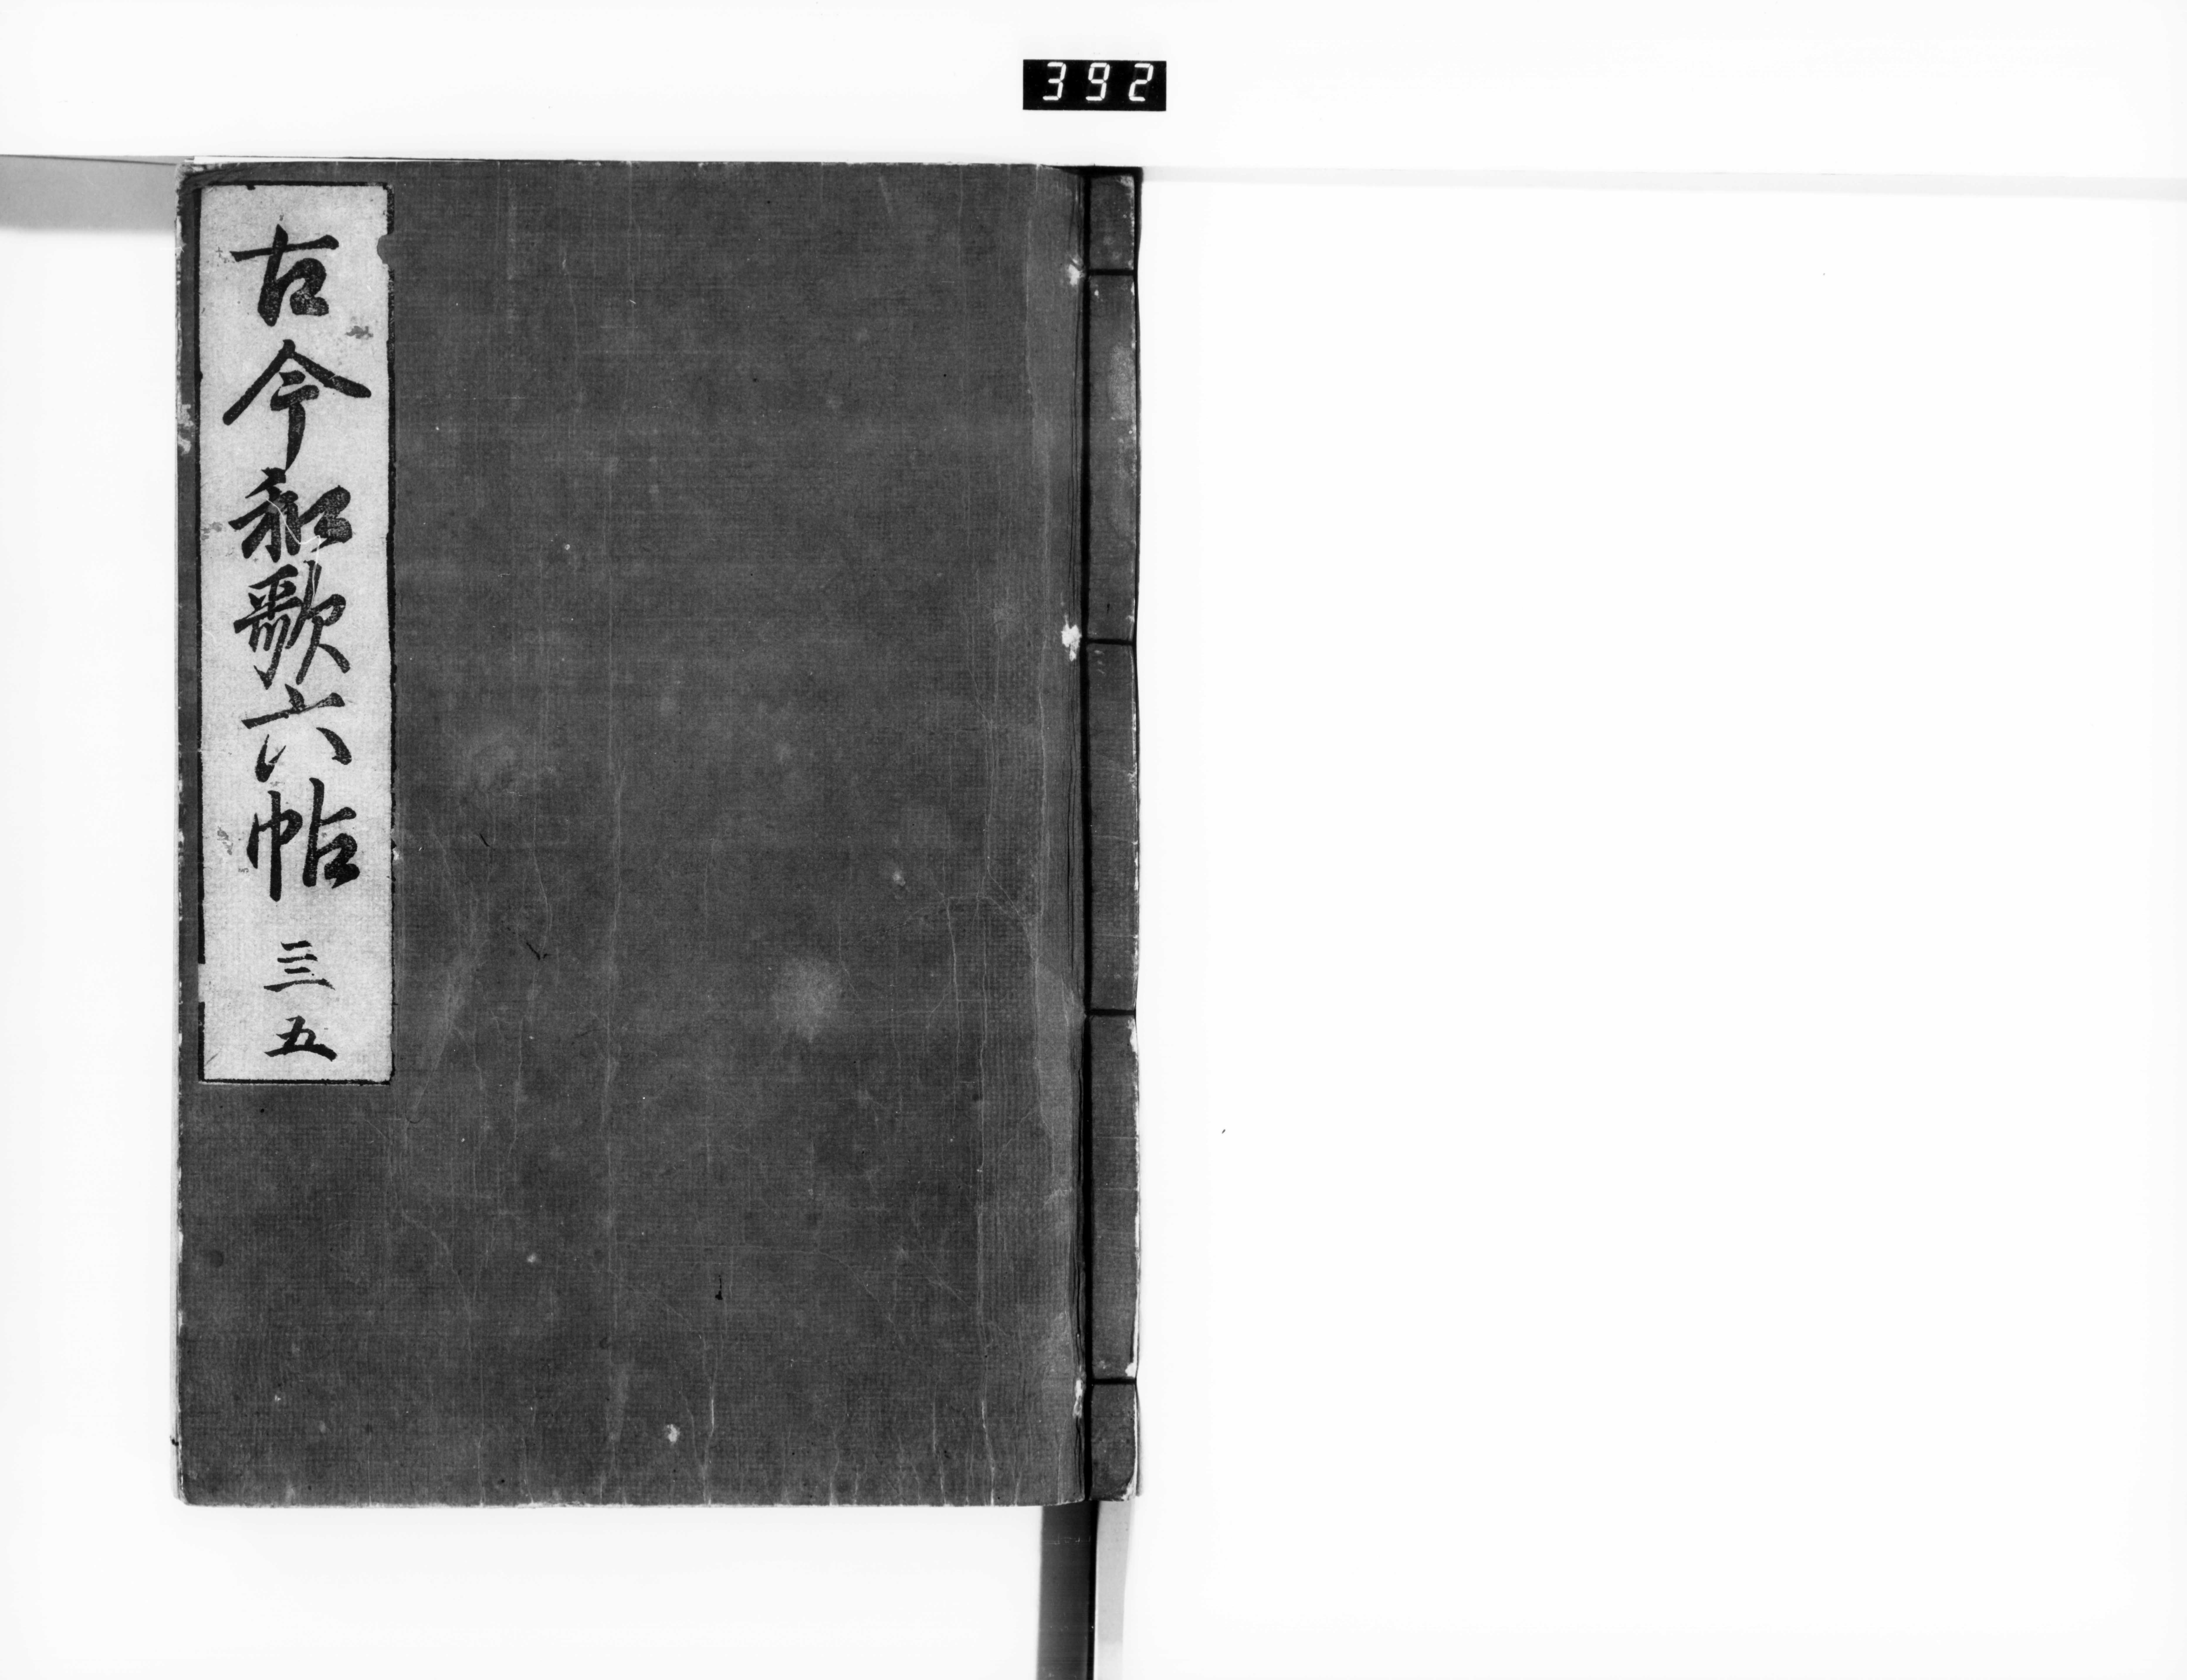 392
古今和歌六帖 三五